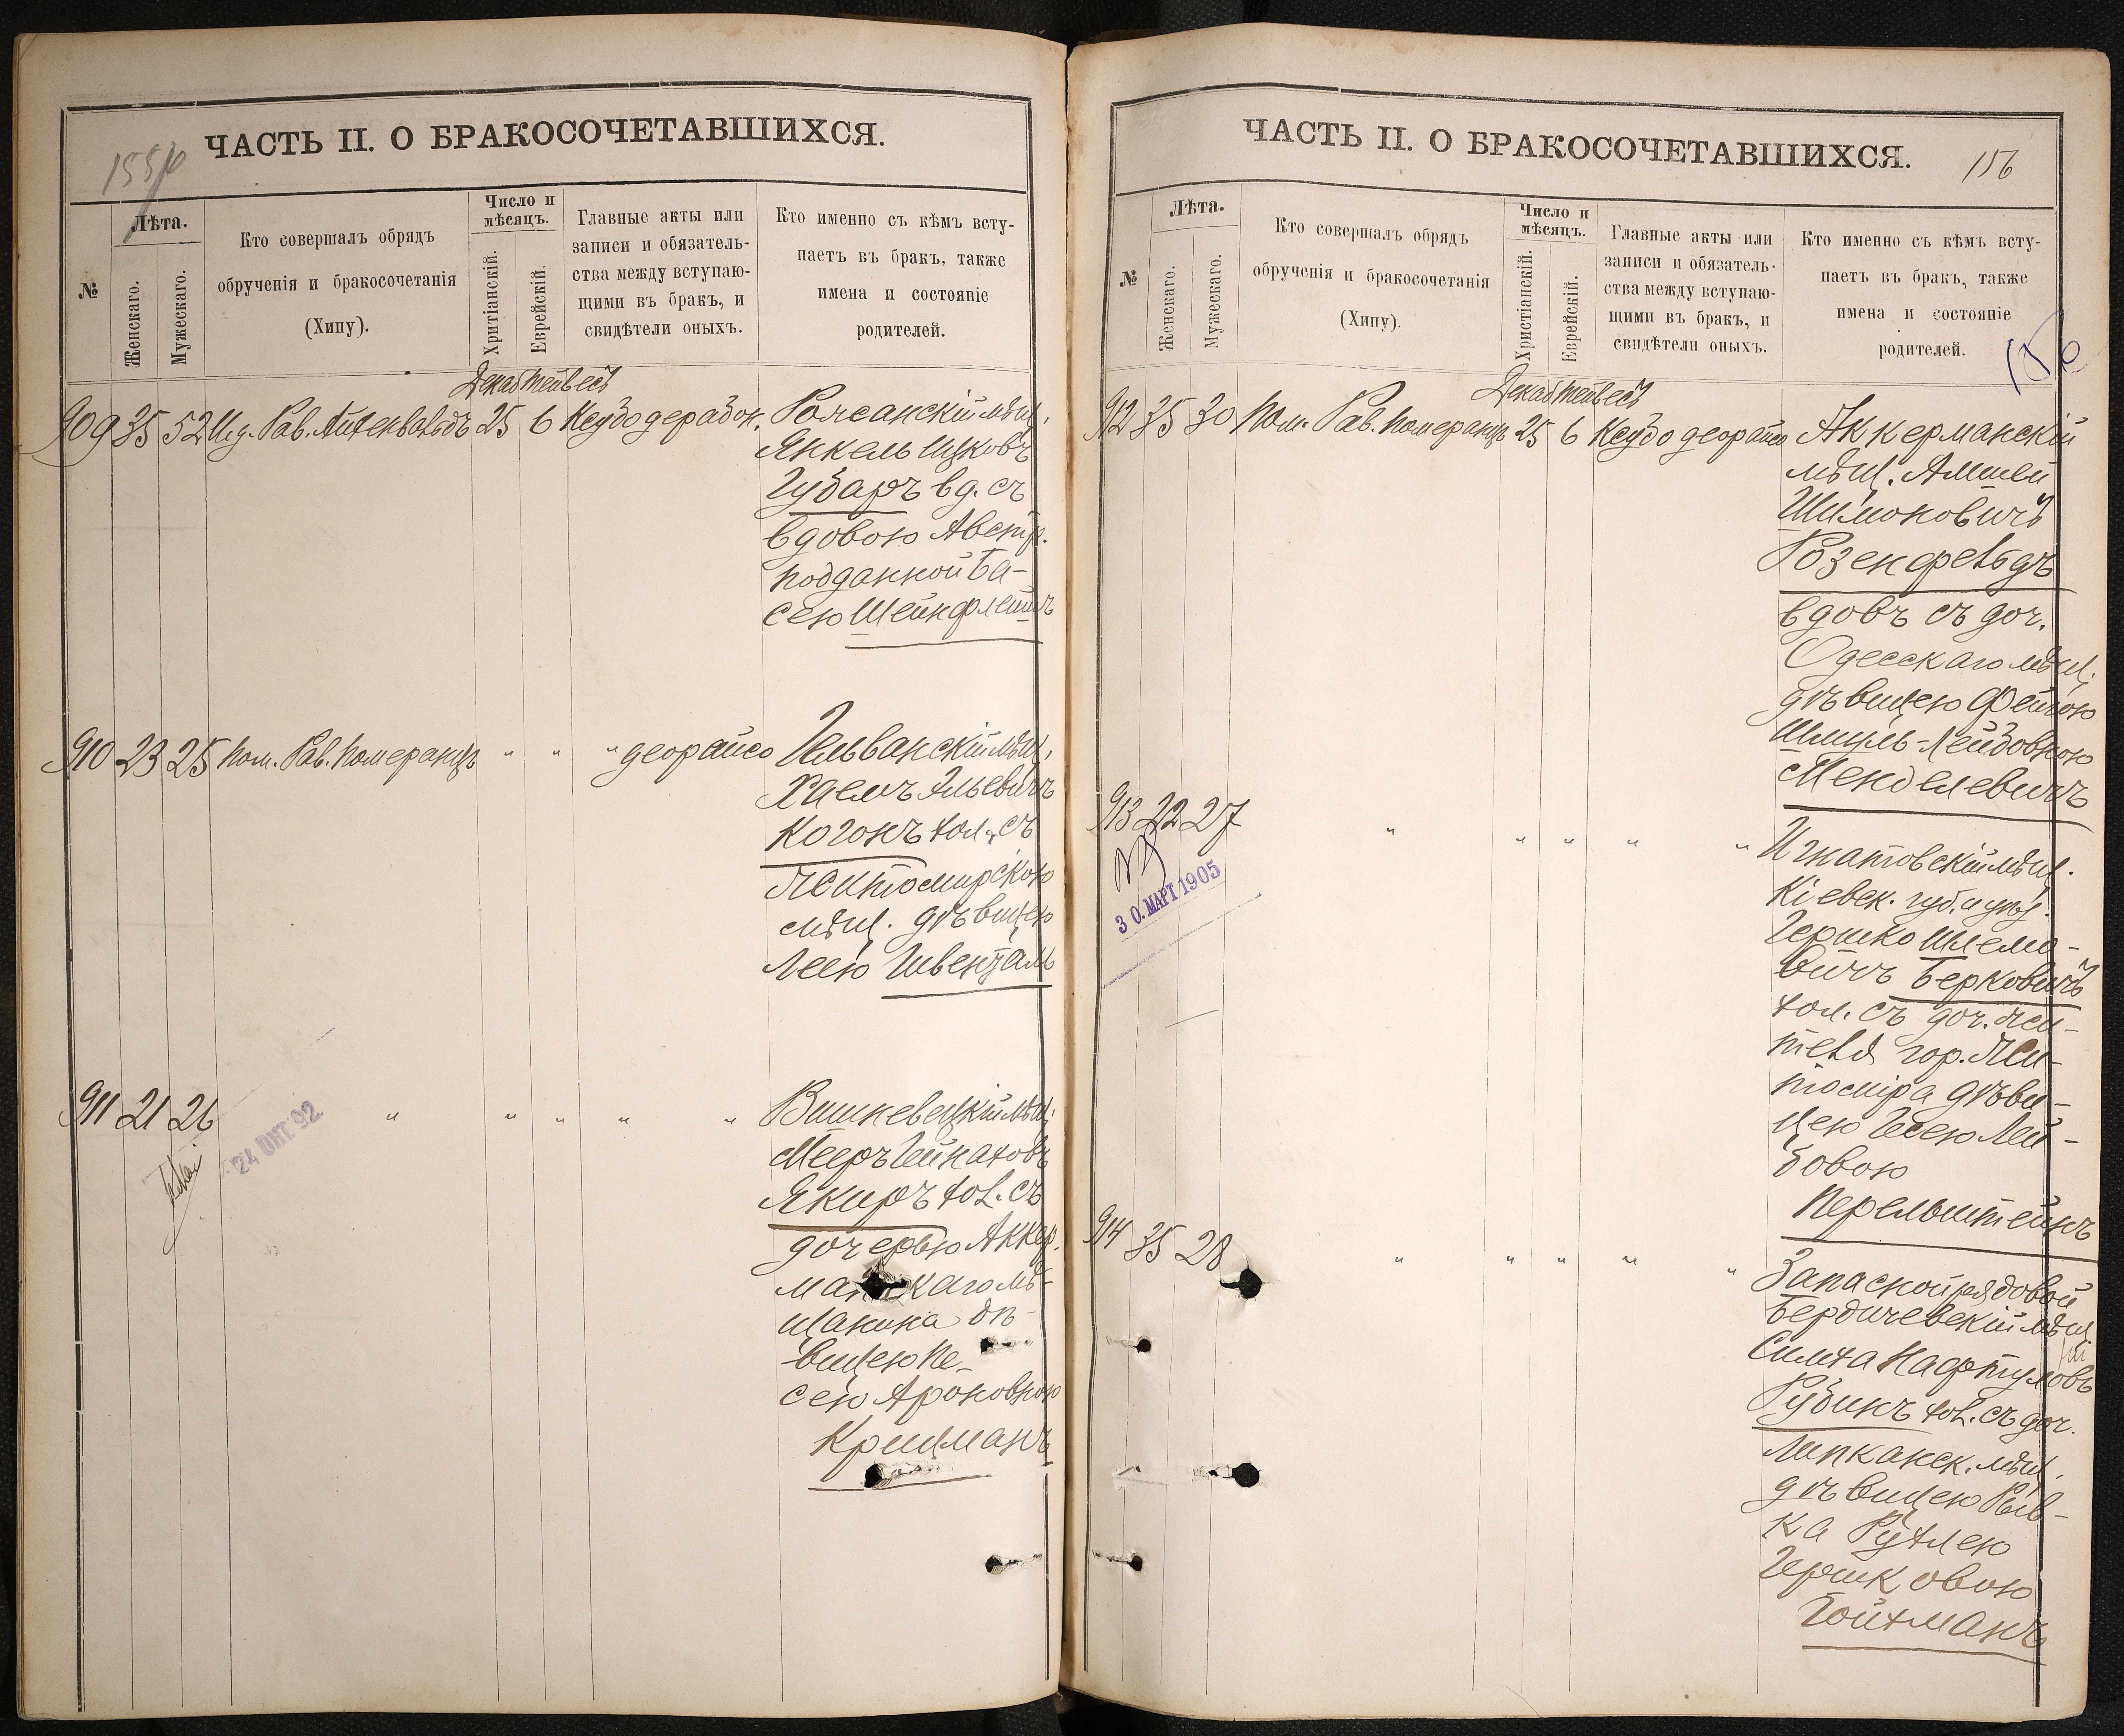 155/р
ЧАСТЬ II. О БРАКОСОЧЕТАВШИХСЯ.
№
Лѣта.
Женскаго.
Мужескаго.
Кто совершалъ обрядъ
обрученія и бракосочетанія
(Хипу).
Число и
мѣсяцъ.
Хритіанскій.
Еврейскій.
Главные акты или
записи и обязатель-
ства между вступаю-
щими въ бракъ, и
свидѣтели оныхъ.
Кто именно съ кѣмъ всту-
паетъ въ бракъ, также
имена и состояніе
родителей.
Декаб Тейвесъ
909 35 52 Рав. Айхенвальдъ 25 6 Ксубо дерабон.
мѣщ.
Янкель Ицковъ
Губаръ вд. съ
вдовою Австр.
подданной Ба-
сею Шейнфлейшъ
910 23 25 Пом. Рав. Померанцъ " " " деорайсо
мѣщ.
Хаимъ Эльевичъ
Когонъ хол. съ
Житомирскою
мѣщ. дѣвицею
Леею Швенталь
911 21 26 " " " " "
24 ОКТ. 92
Вишневецкій мѣщ.
Мееръ Шинаховъ
Якиръ хол. съ
дочерью Аккер.
манскаго мѣ-
щанина дѣ-
вицею Пе-
сею Ароновною
Крицманъ
ЧАСТЬ II. О БРАКОСОЧЕТАВШИХСЯ.
156
№
Лѣта.
Женскаго.
Мужескаго.
Кто совершалъ обрядъ
обрученія и бракосочетанія
(Хипу).
Число и
мѣсяцъ.
Христіанскій.
Еврейскій.
Главные акты или
записи и обязатель-
ства между вступаю-
щими въ бракъ, и
свидѣтели оныхъ.
Кто именно съ кѣмъ всту-
паетъ въ бракъ, также
имена и состояніе
родителей.
Декаб Тейвесъ
912 35 30 Пом. Рав. Померанцъ 25 6 Ксубо деорайсо
Аккерманскій
мѣщ. Амшей
Шимоновичъ
Розенфельдъ
вдовъ съ доч.
Одесскаго мѣщ.
дѣвицею Фейгою
Шмуль-Лейбовною
Менделевичъ
913 22 27 " " " " "
30. МАРТ 1905
Игнатовскій мѣщ.
Кіевск. губ. и уѣз.
Гершко Шлемо-
вичъ Берковичъ
хол. съ доч. жи-
теля гор. Жи-
томира дѣви-
цею Песею Лей-
бовою
Перельштейнъ
914 35 28 " " " " "
Запасной рядовой
Бердичевскій мѣщ.
Симха Нафтуловъ
Рубинъ хол. съ доч.
Липканск. мѣщ.
дѣвицею Рыв-
ка Рухлею
Гершковою
Гойхманъ